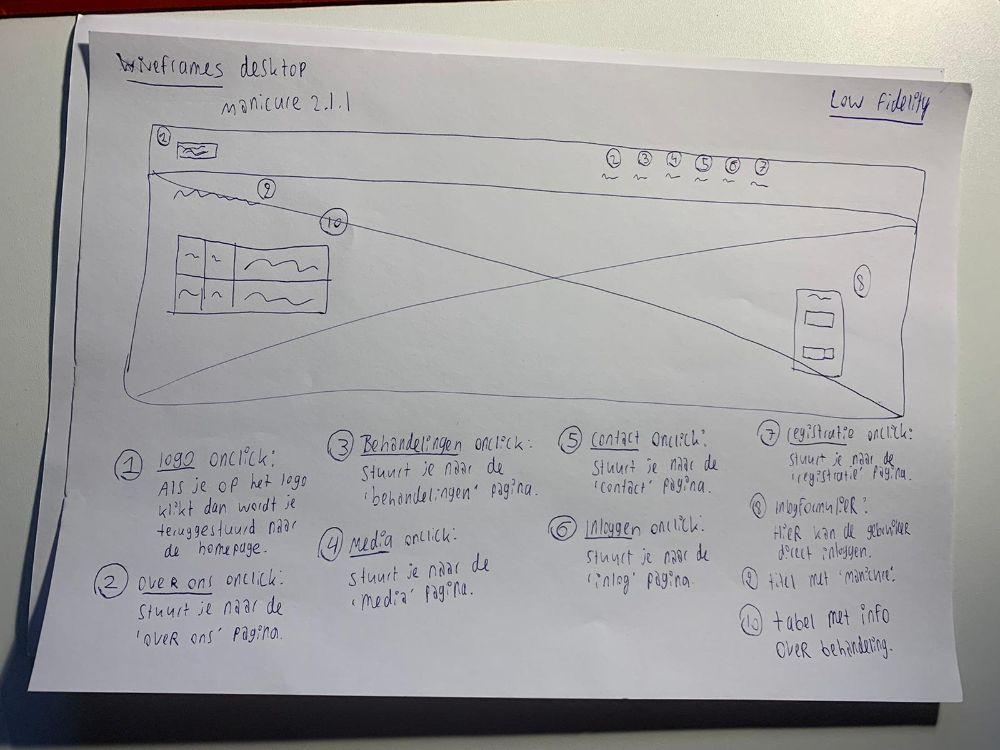 Wireframes desktop
manicure 2.1.1
Low fidelity
1
2
3
4
5
6
7
9
10
8
1 logo onclick:
Als je op het logo
klikt dan wordt je
teruggestuurd naar
de homepage.
2 over ons onclick:
Stuurt je naar de
'over ons' pagina.
3 Behandelingen onclick:
Stuurt je naar de
'behandelingen' pagina.
4 Media onclick:
Stuurt je naar de
'media' pagina.
5 contact onclick:
Stuurt je naar de
'contact' pagina.
6 Inloggen onclick:
Stuurt je naar de
'inlog' pagina.
7 registratie onclick:
Stuurt je naar de
'registratie' pagina.
8 Inlogformulier:
Hier kan de gebruiker
direct inloggen.
9 titel met 'manicure'.
10 tabel met info
over behandeling.